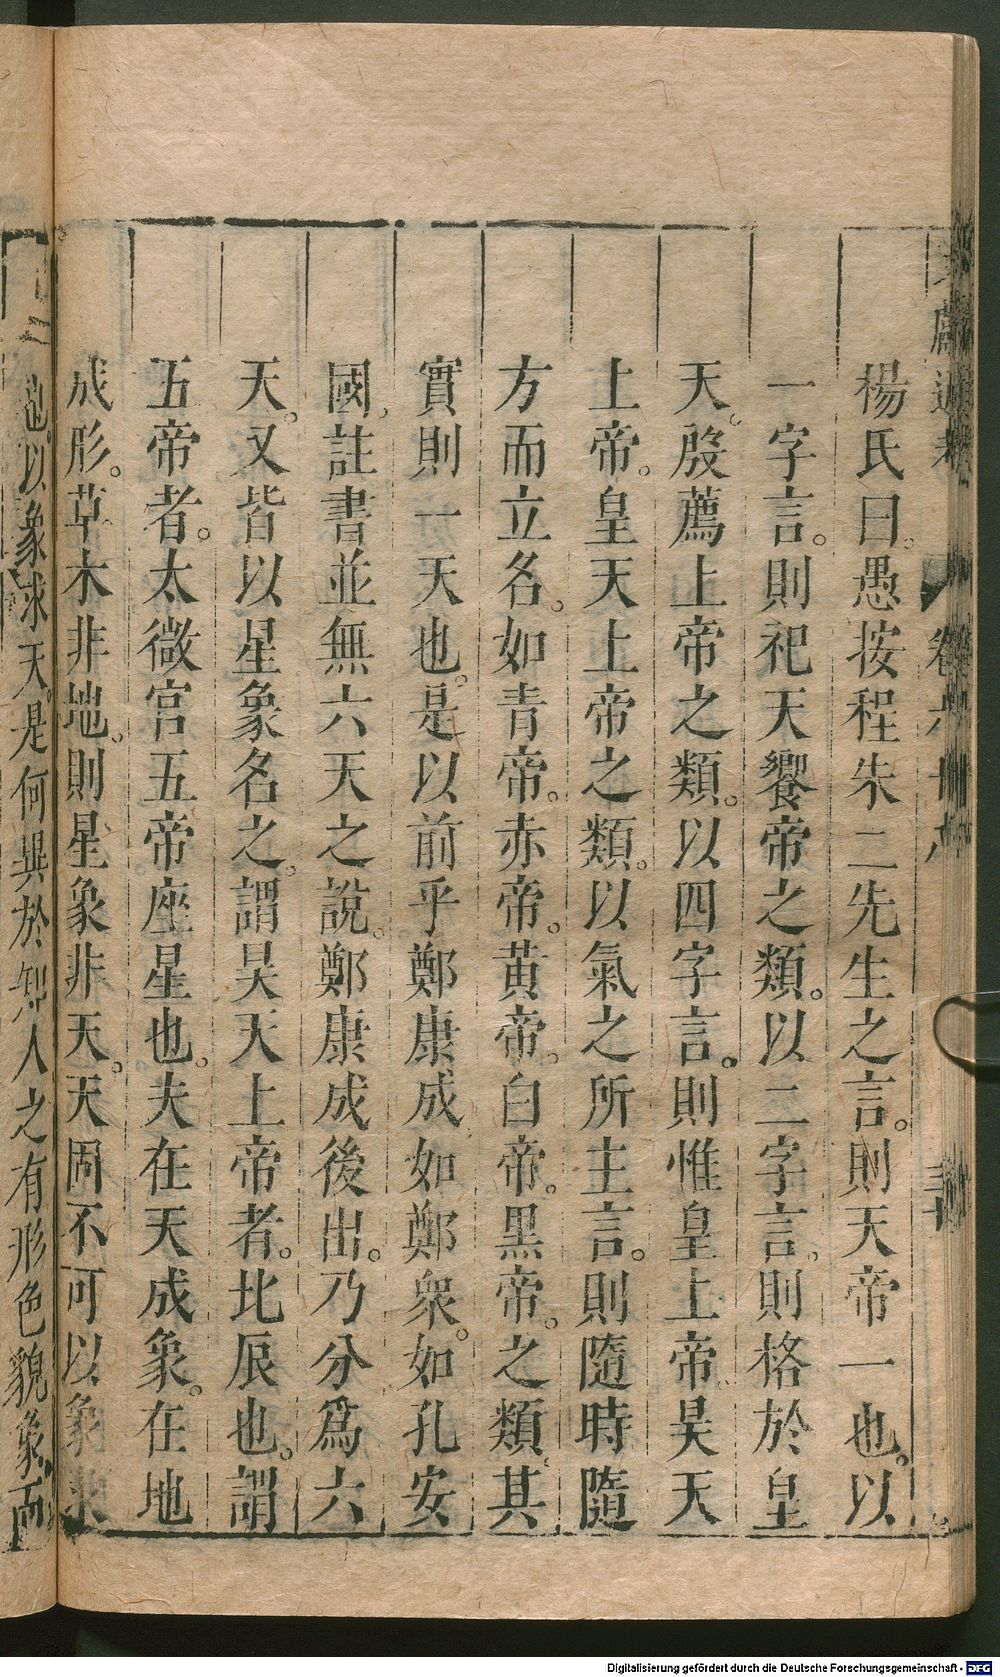 楊氏曰。愚按程朱二先生之言。則天帝一也。以
一字言。則祀天饗帝之類。以二字言。則格於皇
天。殷薦上帝之類。以四字言。則惟皇上帝。昊天
上帝。皇天上帝之類。以氣之所主言。則隨時隨
方而立名。如青帝。赤帝。黃帝。白帝。黑帝。之類。其
實則一天也。是以前乎鄭康成如鄭衆。如孔安
國。註書並無六天之說。鄭康成後出。乃分爲六
天。又皆以星象名之。謂昊天上帝者。北辰也。謂
五帝者。太微宮五帝座星也。夫在天成象。在地
成形。草木非地。則星象非天。天固不可以象求
也。以象求天。是何異於知人之有形色貌象而
Digitalisierung gefördert durch die Deutsche Forschungsgemeinschaft - DFG